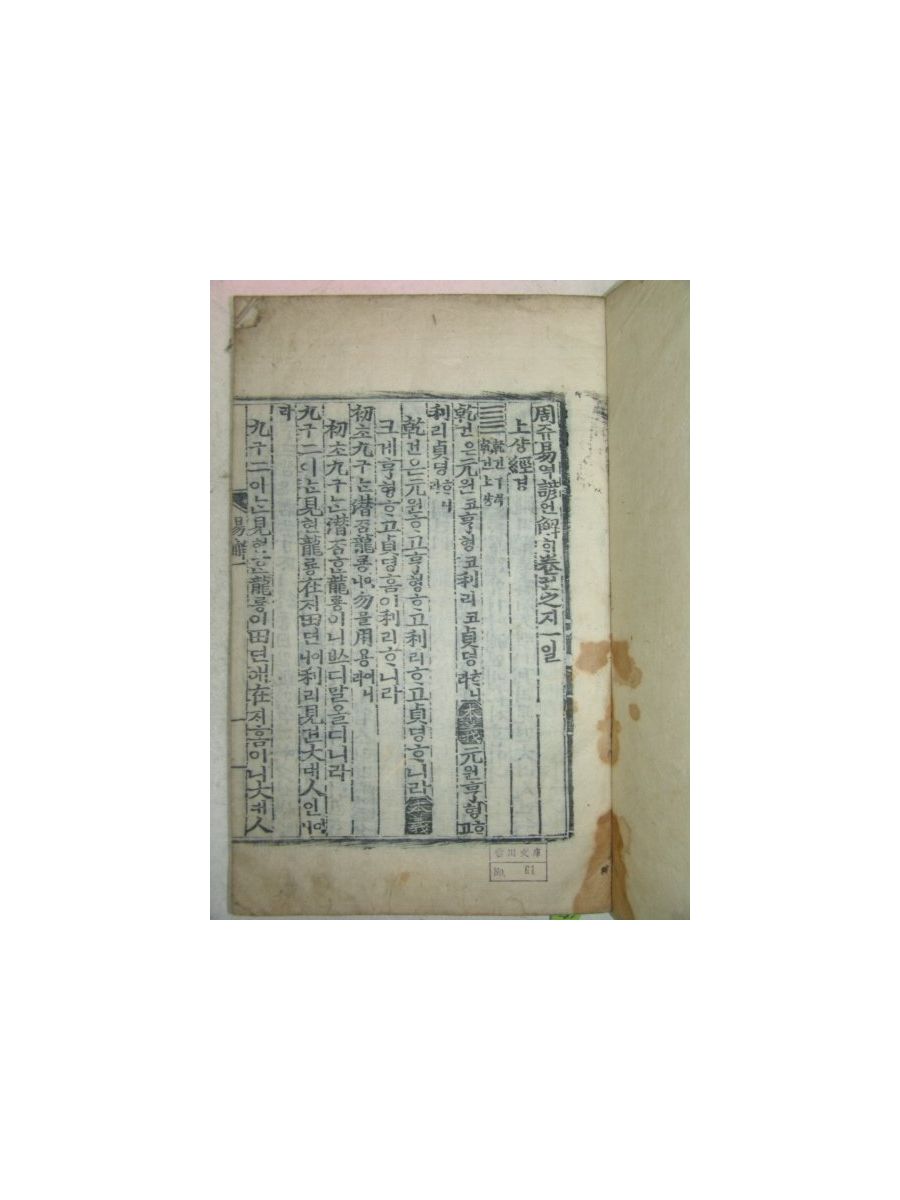 周쥬易역諺언解ᄒᆡ卷권之지一일
上샹經경
乾건下하乾건上샹
乾건은元원코亨형코利리코貞뎡ᄒᆞ니라本義元원亨형ᄒᆞ고
利리貞뎡ᄒᆞ니라
乾건은元원ᄒᆞ고亨형ᄒᆞ고利리ᄒᆞ고貞뎡ᄒᆞ니라本義
크게亨형ᄒᆞ고貞뎡홈이利리ᄒᆞ니라
初초九구ᄂᆞᆫ潛ᄌᆞᆷ龍룡이니勿믈用용이니라
初초九구ᄂᆞᆫ潛ᄌᆞᆷᄒᆞᆫ龍룡이니ᄡᅳ디말올디니라
九구二이ᄂᆞᆫ見현龍룡在ᄌᆡ田뎐이니利리見견大대人인이니
라
九구二이ᄂᆞᆫ見현ᄒᆞᆫ龍룡이田뎐애在ᄌᆡ홈이니大대人
易解一
No. 61